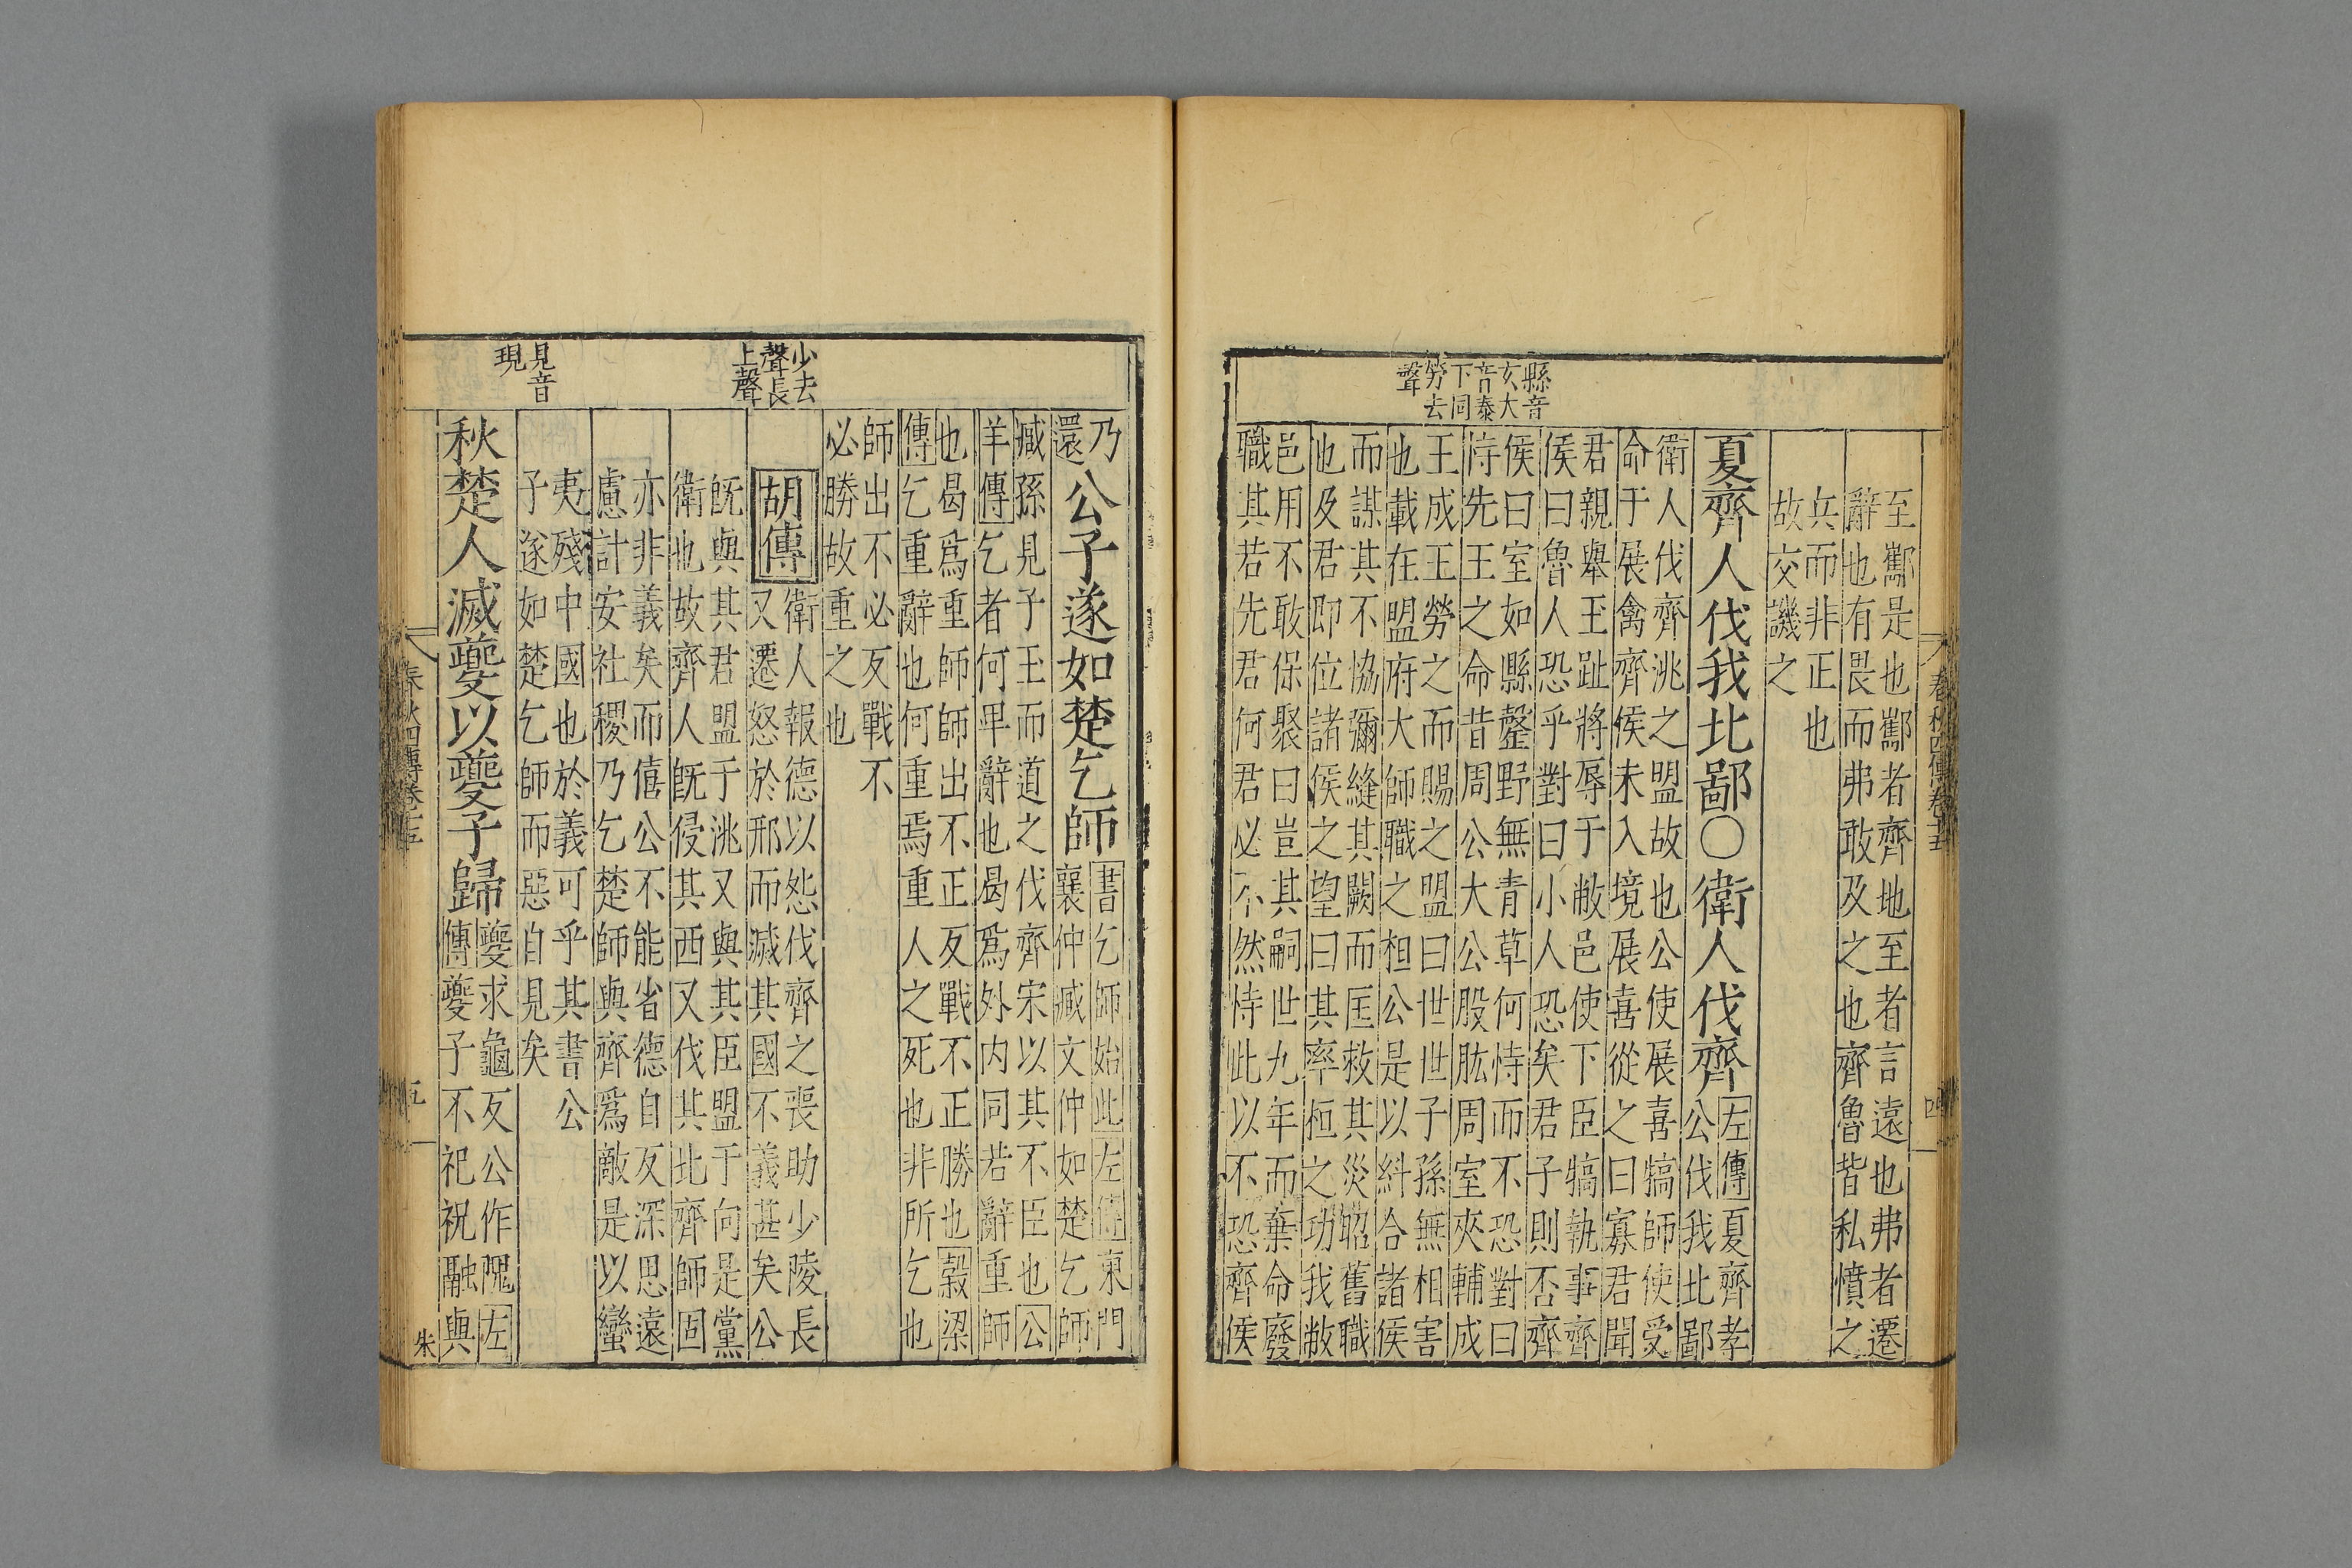 春秋四傳卷十五
四
縣音
玄大
音泰
下同
勞去
聲
至酅是也酅者齊地至者言遠也弗者遷
辭也有畏而弗敢及之也齊魯皆私憤之
兵而非正也
故交譏之
夏齊人伐我北鄙○衛人伐齊
左傳夏齊孝
公伐我北鄙
衛人伐齊洮之盟故也公使展喜犒師使受
命于展禽齊侯未入境展喜從之曰寡君聞
君親舉玉趾將辱于敝邑使下臣犒執事齊
侯曰魯人恐乎對曰小人恐矣君子則否齊
侯曰室如縣罄野無青草何恃而不恐對曰
恃先王之命昔周公大公股肱周室夾輔成
王成王勞之而賜之盟曰世世子孫無相害
也載在盟府大師職之桓公是以糾合諸侯
而謀其不協彌縫其闕而匡救其災昭舊職
也及君即位諸侯之望曰其率桓之功我敝
邑用不敢保聚曰豈其嗣世九年而棄命廢
職其若先君何君必不然恃此以不恐齊侯
少去
聲長
上聲
見音
現
乃
還
公子遂如楚乞師
書乞師始此左傳東門
襄仲臧文仲如楚乞師
臧孫見子玉而道之伐齊宋以其不臣也公
羊傳乞者何卑辭也曷爲外内同若辭重師
也曷爲重師師出不正反戰不正勝也穀梁
傳乞重辭也何重焉重人之死也非所乞也
師出不必反戰不
必勝故重之也
胡傳
衛人報德以怨伐齊之喪助少陵長
又遷怒於邢而滅其國不義甚矣公
既與其君盟于洮又與其臣盟于向是黨
衛也故齊人既侵其西又伐其北齊師固
亦非義矣而僖公不能省德自反深思遠
慮計安社稷乃乞楚師與齊爲敵是以蠻
夷殘中國也於義可乎其書公
子遂如楚乞師而惡自見矣
秋楚人滅夔以夔子歸
夔求龜反公作隗左
傳夔子不祀祝融與
朱
春秋四傳卷十五
五